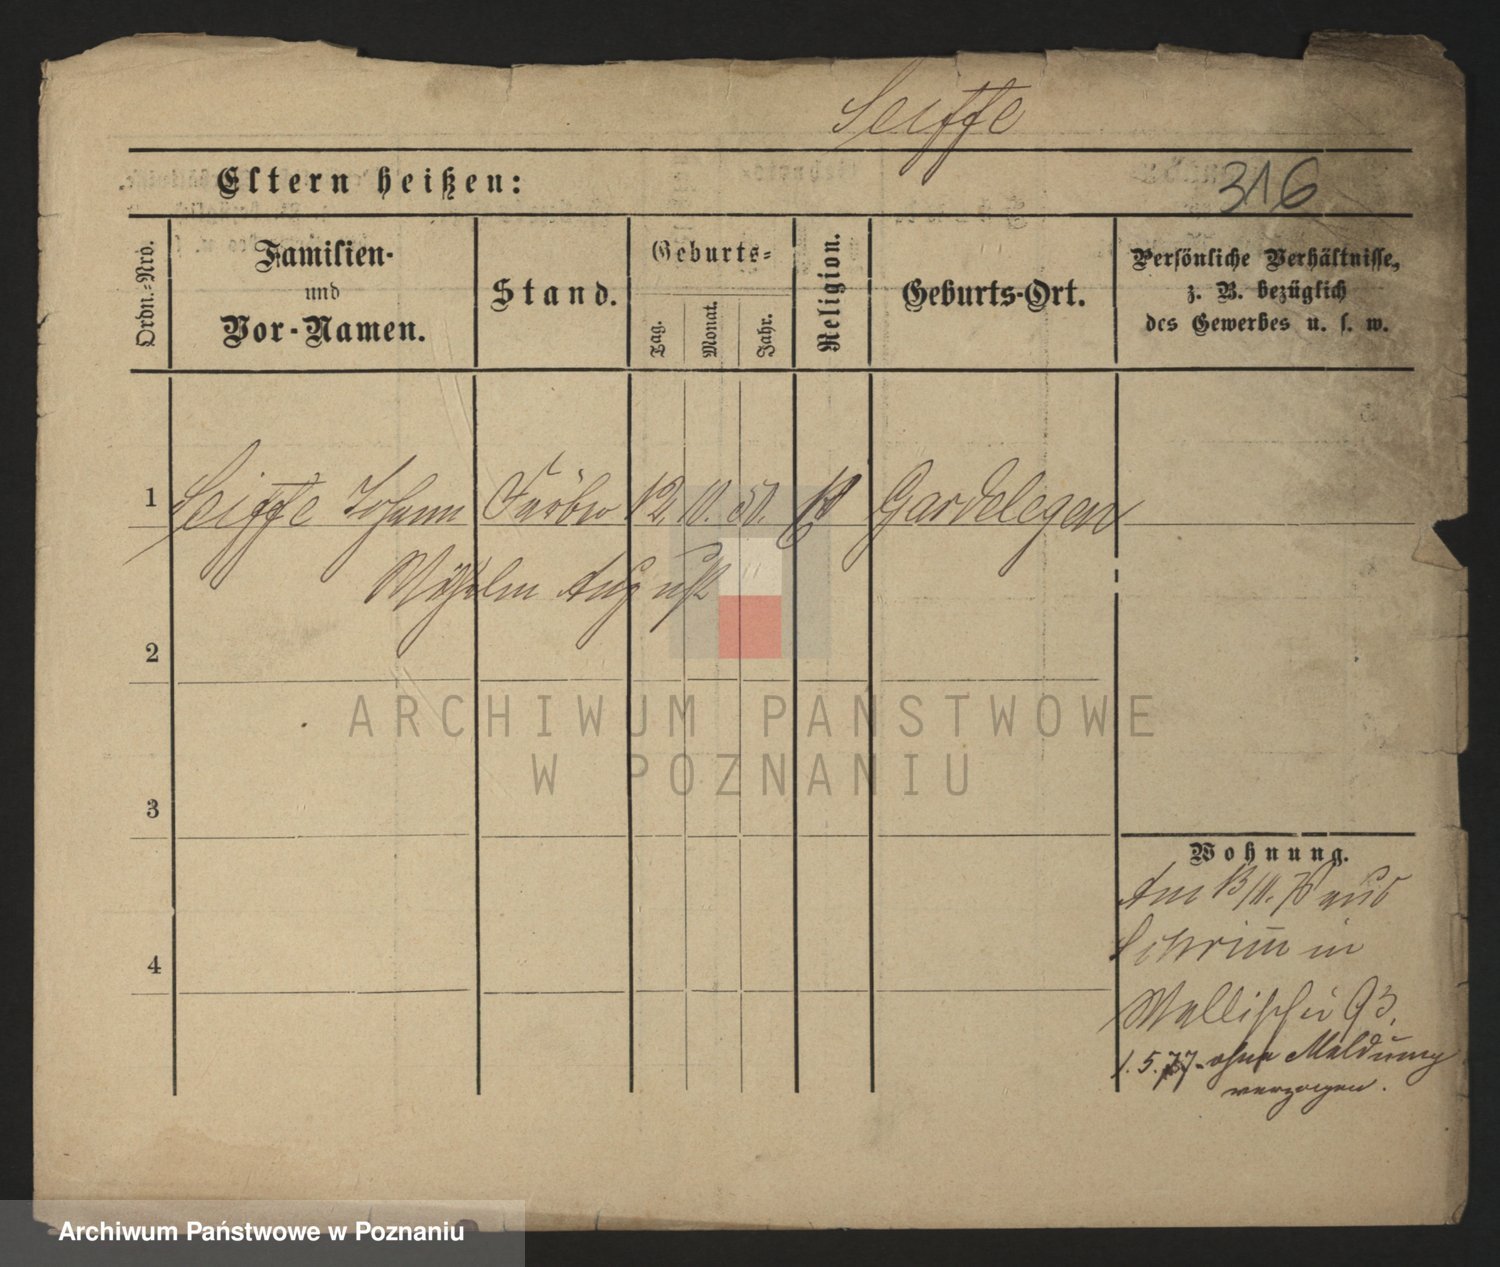 Seiffe
Eltern heißen:
316
Ordn.-Nro.
Familien-
und
Vor-Namen.
Stand.
Geburts-
Tag.
Monat.
Jahr.
Religion.
Geburts-Ort.
Persönliche Verhältnisse,
z. B. bezüglich
des Gewerbes u. s. w.
1 Seiffe Johann Färber 12. 10. 50. Gardelegen
Wilhelm August
2
3
4
Wohnung.
Am 13/10. 76 aus
Schrimm in
Wallischei 93.
1. 5. 77. ohne Meldung
verzogen.
ARCHIWUM PAŃSTWOWE
W POZNANIU
Archiwum Państwowe w Poznaniu